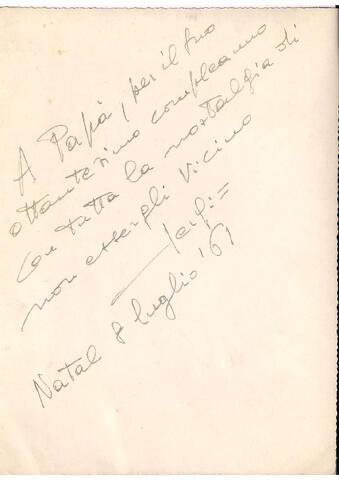 A Papà, per il suo
ottantesimo compleanno
con tutta la nostalgia di
non essergli vicino
Natal 8 luglio '61